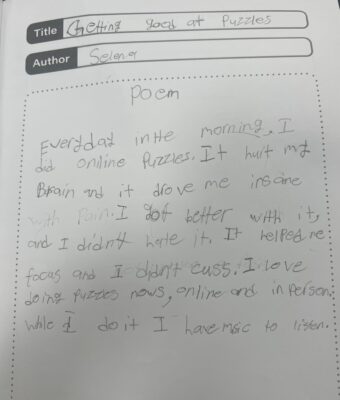 Title Getting good at Puzzles
Author Selena
Poem
Everyday in the morning, I
did online Puzzles. It hurt my
Brain and it drove me insane
with Pain. I got better with it,
and I didn't hate it. It helped me
focus and I didn't cuss. I love
doing Puzzles nows, online and in Person.
while I do it I have msic to listen.